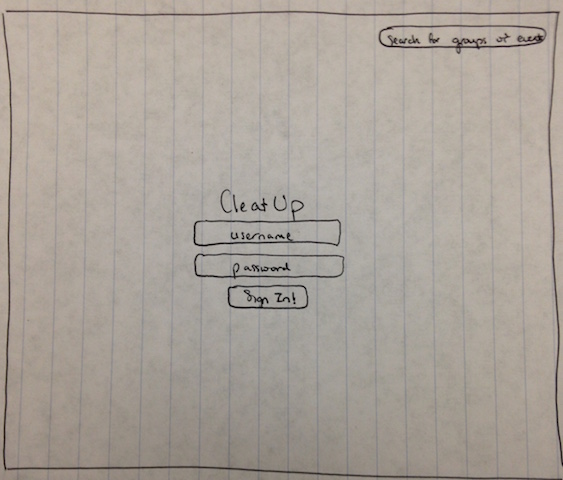 Search for groups or event
CleatUp
username
password
Sign In!